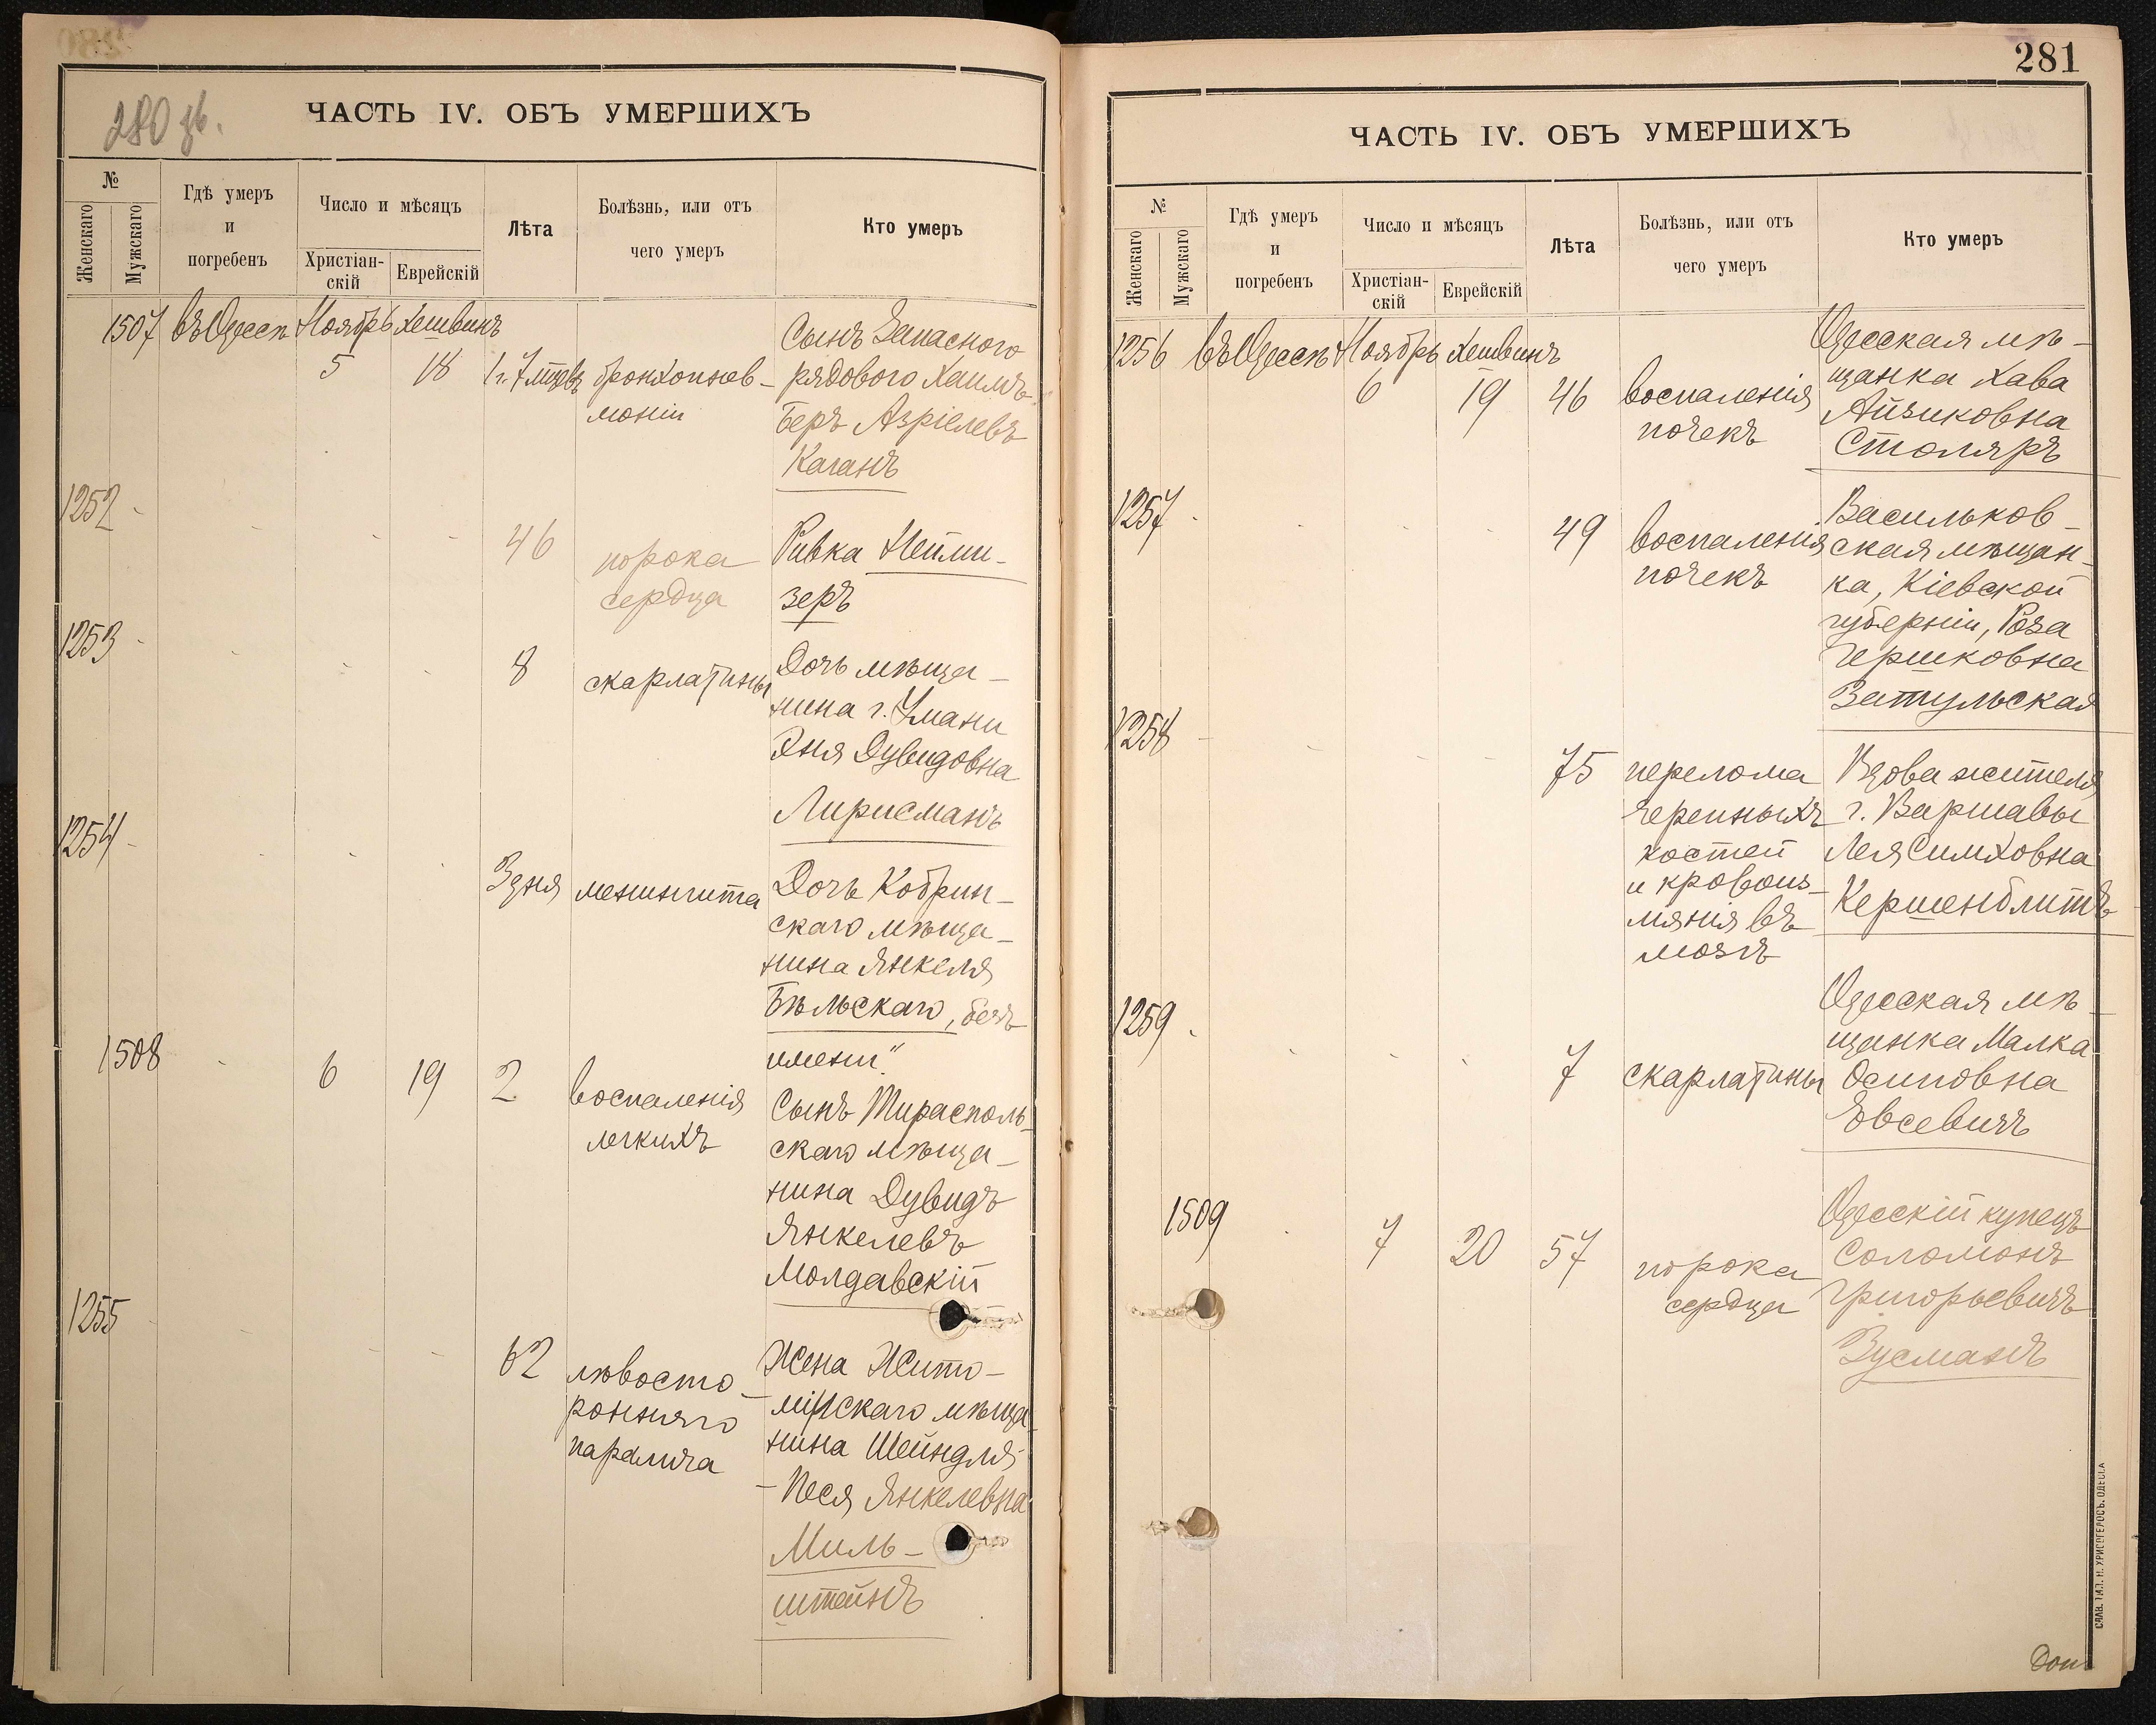 280 зв.
ЧАСТЬ IV. ОБЪ УМЕРШИХЪ
№
Женскаго
Мужскаго
Гдѣ умеръ
и
погребенъ
Число и мѣсяцъ
Христіан-
скій
Еврейскій
Лѣта
Болѣзнь, или отъ
чего умеръ
Кто умеръ
1507 въ Одессѣ Ноябрь Хешвинъ
5 18 1 г. 7 мцевъ бронхопнев-
моніи
Сынъ Запасного
рядового Хаимъ-
Беръ Азріелевъ
Каганъ
1252
46 порока
сердца
Ривка Неими-
зеръ
1253
8 скарлатины
Дочь мѣща-
нина г. Умани
Эня Дувидовна
Лирисманъ
1254
3 дня менингита
Дочь Кобрин-
скаго мѣща-
нина Янкеля
Бѣльскаго, „безъ
имени“
1508 6 19 2 воспаленія
легкихъ
Сынъ Тирасполь-
скаго мѣща-
нина Дувидъ
Янкелевъ
Молдавскій
1255
62 лѣвосто-
ронняго
паралича
Жена Жито-
мірскаго мѣща-
нина Шейндля-
-Песя Янкелевна
Миль-
штейнъ
281
ЧАСТЬ IV. ОБЪ УМЕРШИХЪ
№
Женскаго
Мужскаго
Гдѣ умеръ
и
погребенъ
Число и мѣсяцъ
Христіан-
скій
Еврейскій
Лѣта
Болѣзнь, или отъ
чего умеръ
Кто умеръ
1256 въ Одессѣ Ноябрь Хешвинъ
6 19 46 воспаленія
почекъ
Одесская мѣ-
щанка Хава
Айзиковна
Столяръ
1257
49 воспаленія
почекъ
Васильков-
ская мѣщан-
ка, Кіевской
губерніи, Роза
Гершковна
Затульская
1258
75 перелома
черепныхъ
костей
и кровоиз-
мянія въ
мозгъ
Вдова жителя
г. Варшавы
Лея Симховна
Кершенблитъ
1259
7 скарлатины
Одесская мѣ-
щанка Малка
Осиповна
Евсевичъ
1509 7 20 57 порока
сердца
Одесскій купецъ
Соломонъ
Григорьевичъ
Зусманъ
СЛАВ. ТИП. Н. ХРИСОГЕЛОСЪ. ОДЕССА